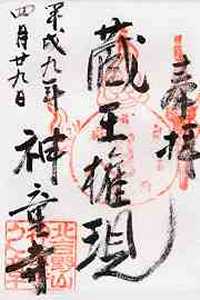 奉拝
蔵王権現
神童寺
平成九年
四月廿九日
北吉野山